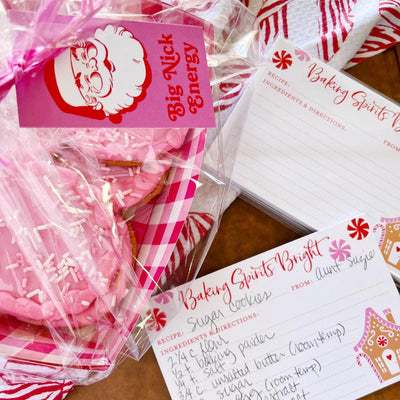 Big Nick
Energy
Baking Spirits Br
RECIPE:
INGREDIENTS & DIRECTIONS:
FROM:
Baking Spirits Bright
RECIPE: Sugar Cookies
FROM: aunt suzie
INGREDIENTS & DIRECTIONS:
2 1/4 c flour
baking powder
salt
3/4 c unsalted butter (room temp)
sugar
(room temp)